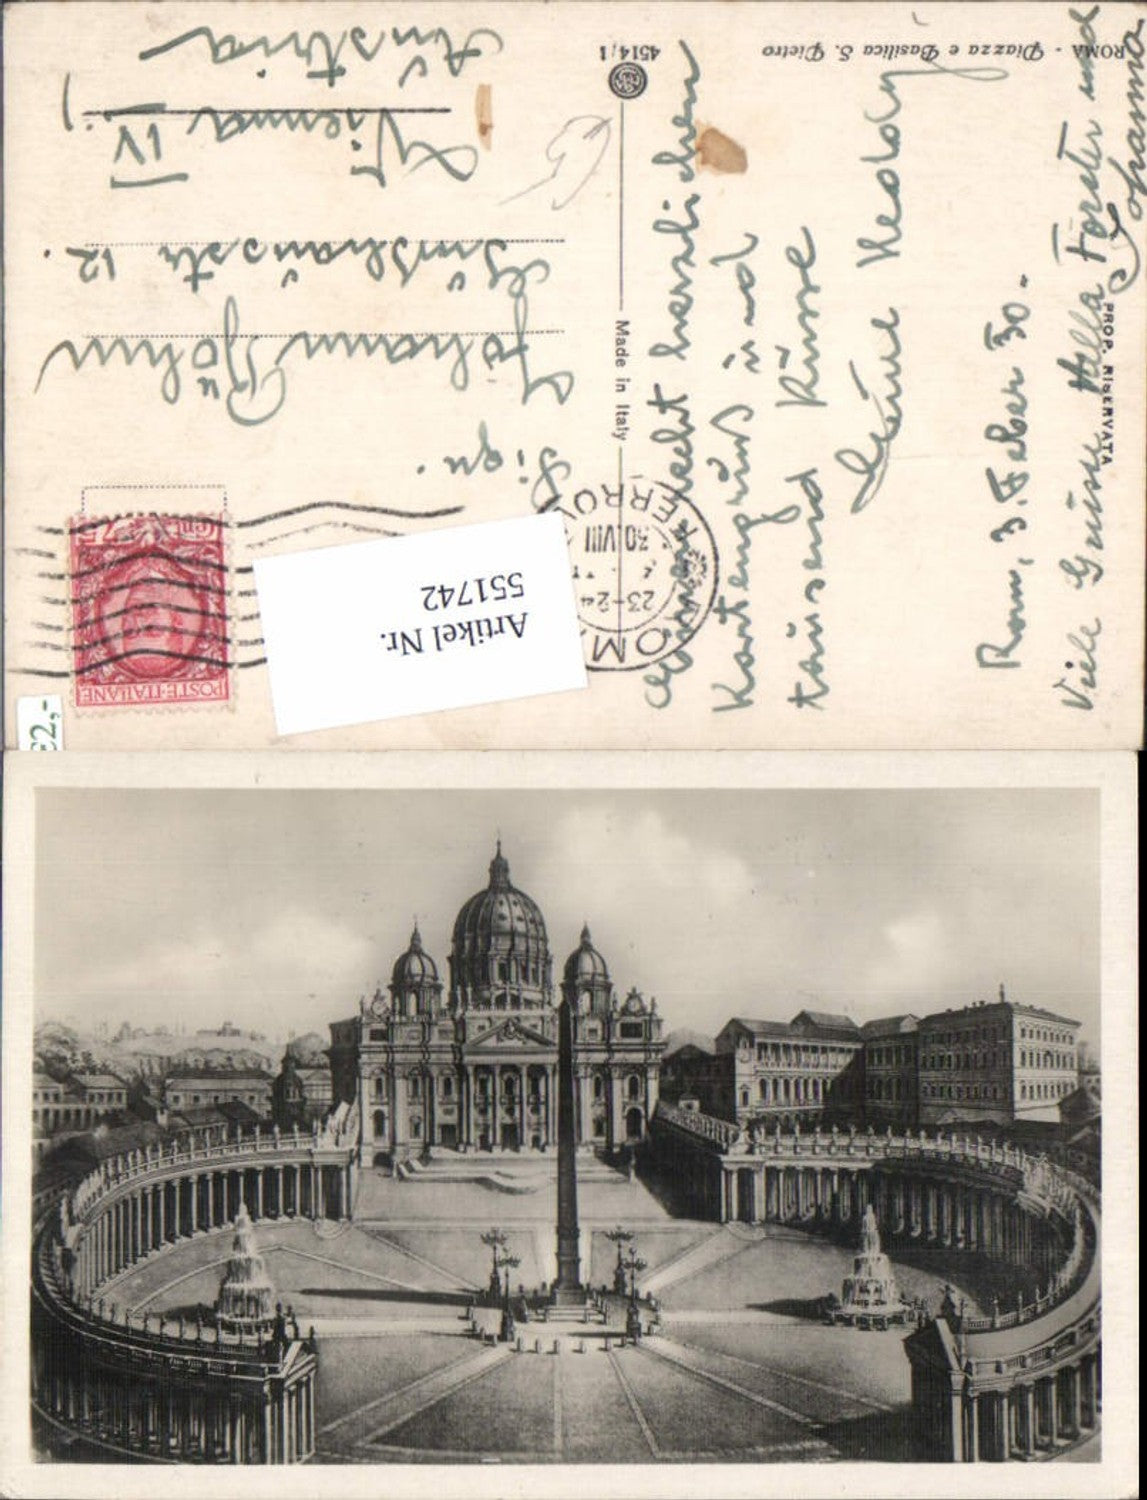 ROMA - Piazza e Basilica S. Pietro
4514/1
Made in Italy
PROP. RISERVATA
Rom, 3. Feber 30.
recht herzlichen
Kartengruß und
tausend Küsse
Viele Grüsse Hella Forster und
Johanna
Sign.
Johann
12.
Vienna
IV.
Austria
POSTE·ITALIANE
Cent 75
ROMA FERROVIA
23-24
30 VIII
Artikel Nr.
551742
€2,-